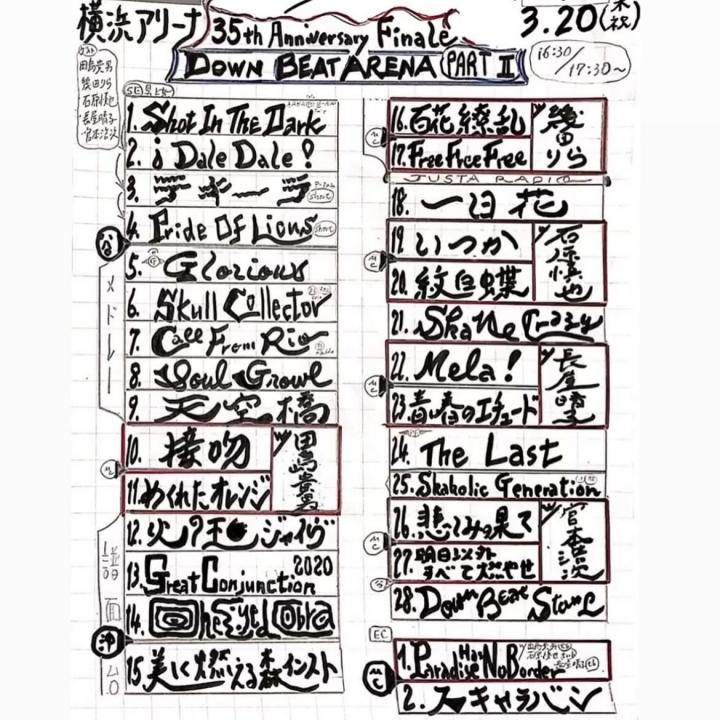 横浜アリーナ
35th Anniversary Finale
3.20(木祝)
DOWN BEAT ARENA PART II
16:30/17:30~
ゲスト
田島貴男
幾田りら
石原慎也
長屋晴子
宮本浩次
1. Shot In The Dark
2. ¡Dale Dale!
3. ラギーラ
short
4. Pride Of Lions
short
谷
メドレー
5. Glorious
6. Skull Collector
7. Call From Rio
8. Soul Growl
9. 天空橋
MC
10. 接吻
11. めくれたオレンジ
田島貴男
12. 火の玉ジャイヴ
13. Great Conjunction 2020
14.
沖
15. 美しく燃える森インスト
MC
16. 百花繚乱
17. Free Free Free
幾田りら
JUSTA RADIO
18. 一日花
MC
19. いつか
20. 紋白蝶
石原慎也
21. Skame Crazy
MC
22. Mela!
23. 青春のエチュード
長屋晴子
24. The Last
25. Skaholic Generation
MC
26. 悲しみの果て
27. 明日以外すべて燃やせ
宮本浩次
28. Down Beat Stomp
EC
MC
1. Paradise Has No Border
2. スキャラバン